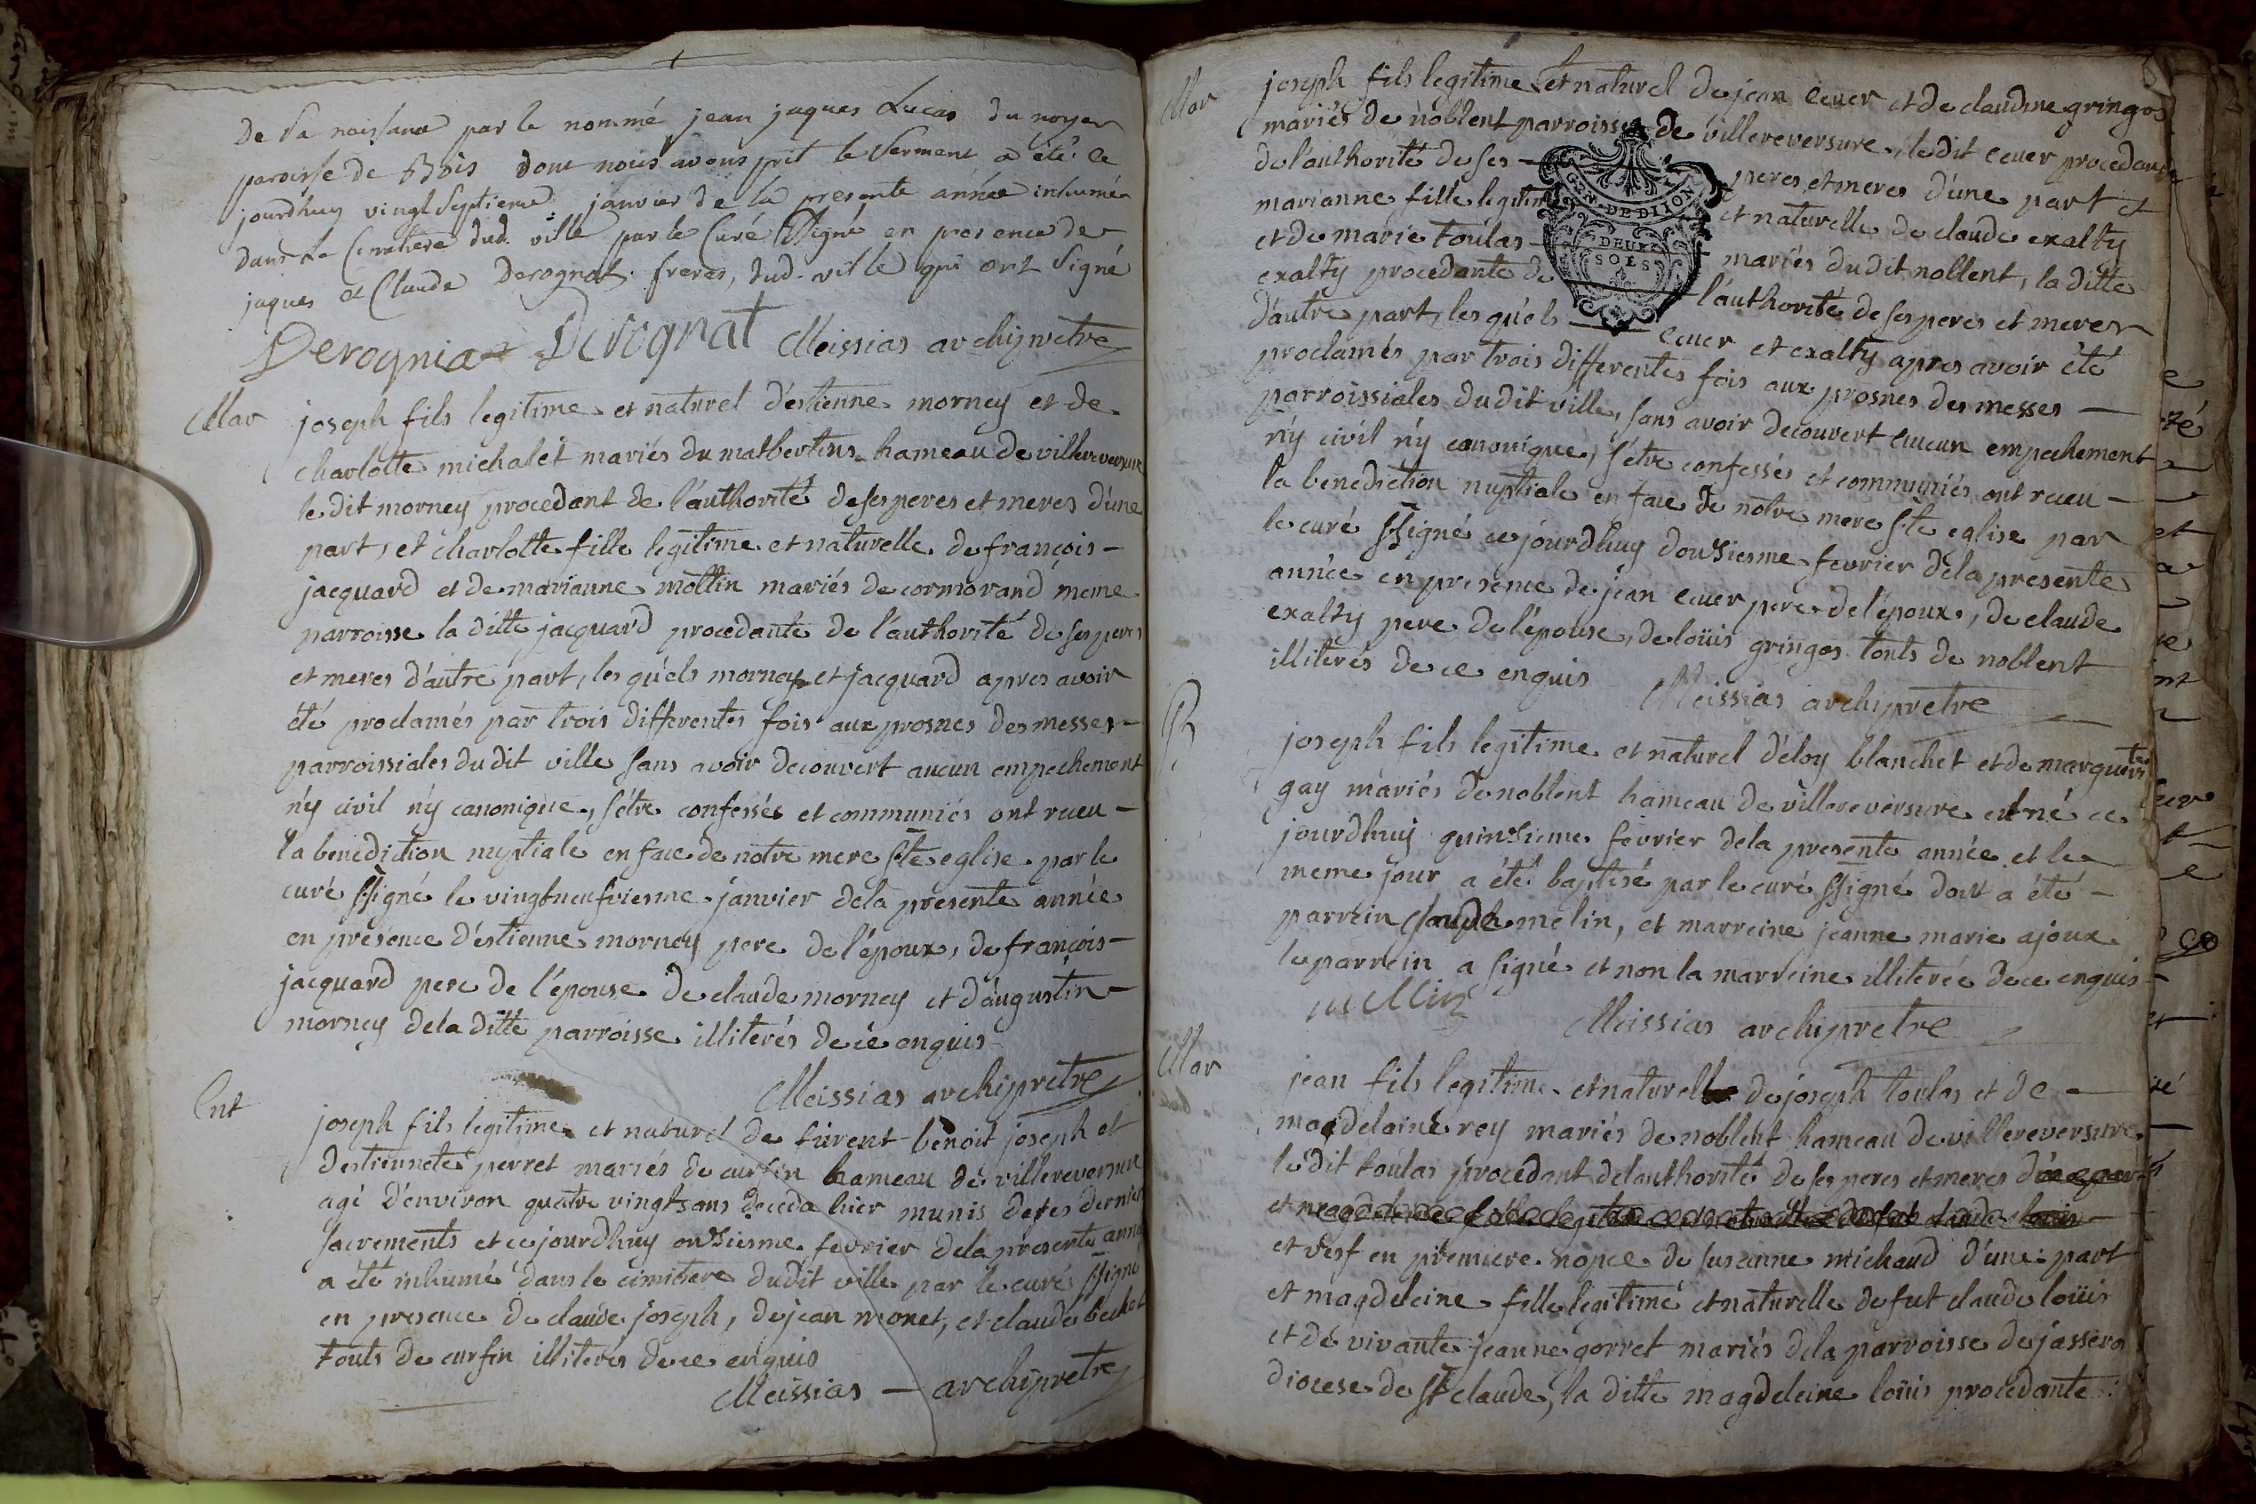 de sa naissance par le nommé jean jaques Lucas du noyer
paroisse de Bois dont nous avons prit le serment a été ce
jourdhuy vingt septieme janvier de la presente année inhumée
dans le Cimetiere dud. ville par le Curé ssigné en presence de
jaques et Claude Derognat freres, dud. ville qui ont signé
Derognia Derognat Meissias archipretre
Mar
joseph fils legitime et naturel d'estienne morney et de
charlotte michalet mariés du malbertins hameau de villereversure
le dit morney procedant de l'authorité de ses peres et meres d'une
part, et charlotte fille legitime et naturelle de françois
jacquard et de marianne mottin mariés de cormorand meme
parroisse la ditte jacquard procedante de l'authorité de ses peres
et meres d'autre part, les quéls morney et jacquard apres avoir
été proclamés par trois differentes fois aux prosnes des messes
parroissiales du dit ville sans avoir decouvert aucun empechement
n'y civil n'y canonique, s'étre confessés et communiés ont rceu
la benediction nuptiale en face de notre mere ste eglise par le
curé ssigné le vingtneufviesme janvier dela presente année
en présence d'estienne morney pere de l'époux, de françois
jacquard pere de l'épouse de claude morney et d'augustin
morney dela ditte parroisse illiterés de ce enquis
Meissias archipretre
Ent
joseph fils legitime et naturel de benoit joseph et
destiennete perret mariés de curfin hameau de villereversure
agé d'environ quatre vingts ans deceda hier munis de ses derniers
sacrements et ce jourdhuy onsiesme fevrier dela presente année
a été inhumé dans le cimitiere dudit ville par le curé ssigné
en presence de claude joseph, de jean monet, et claude
touts de curfin illiterés de ce enquis
Meissias archipretre
Mar
joseph fils legitime et naturel de jean ecuer et de claudine gringos
mariés de noblent parroisse de villereversure, le dit ecuer procedant
de l'authorité de ses peres et meres d'une part et
marianne fille legitime et naturelle de claude exalty
et de marie toulas mariés du dit noblent, la ditte
exalty procedante de l'authorité de ses peres et meres
d'autre part, les quéls ecuer et exalty apres avoir été
proclamés par trois differentes fois aux prosnes des messes
parroissiales du dit ville, sans avoir decouvert aucun empechement
n'y civil n'y canonique, s'étre confessés et communiés ont rceu
la benediction nuptiale en face de notre mere ste eglise par
le curé ssigné ce jourdhuy dousiesme fevrier dela presente
année en presence de jean ecuer pere de l'époux, de claude
exalty pere de l'épouse, de loüis gringos touts de noblent
illiterés de ce enquis
Meissias archipretre
GEN. DE DIJON
DEUX
SOLS
B
joseph fils legitime et naturel d'eloy blanchet et de marguerite
gay mariés de noblent hameau de villereversure est né ce
jourdhuy quinsieme fevrier dela presente année et le
meme jour a été baptisé par le curé ssigné dont a été
parrein claude melin, et marreine jeanne marie ajoux
le parrein a signé et non la marreine illiterée de ce enquis
Meissias archipretre
Mar
jean fils legitime et naturel de joseph toulas et de
magdelaine rey mariés de noblent hameau de villereversure
le dit toulas procedant de l'authorité de ses peres et meres
et vesf en premiere nopce de susanne michaud d'une part
et magdeleine fille legitime et naturelle de fut claude loüis
et de vivante jeanne gorret mariés dela parroisse de jasseron
diocese de st claude, la ditte magdeleine loüis procedante